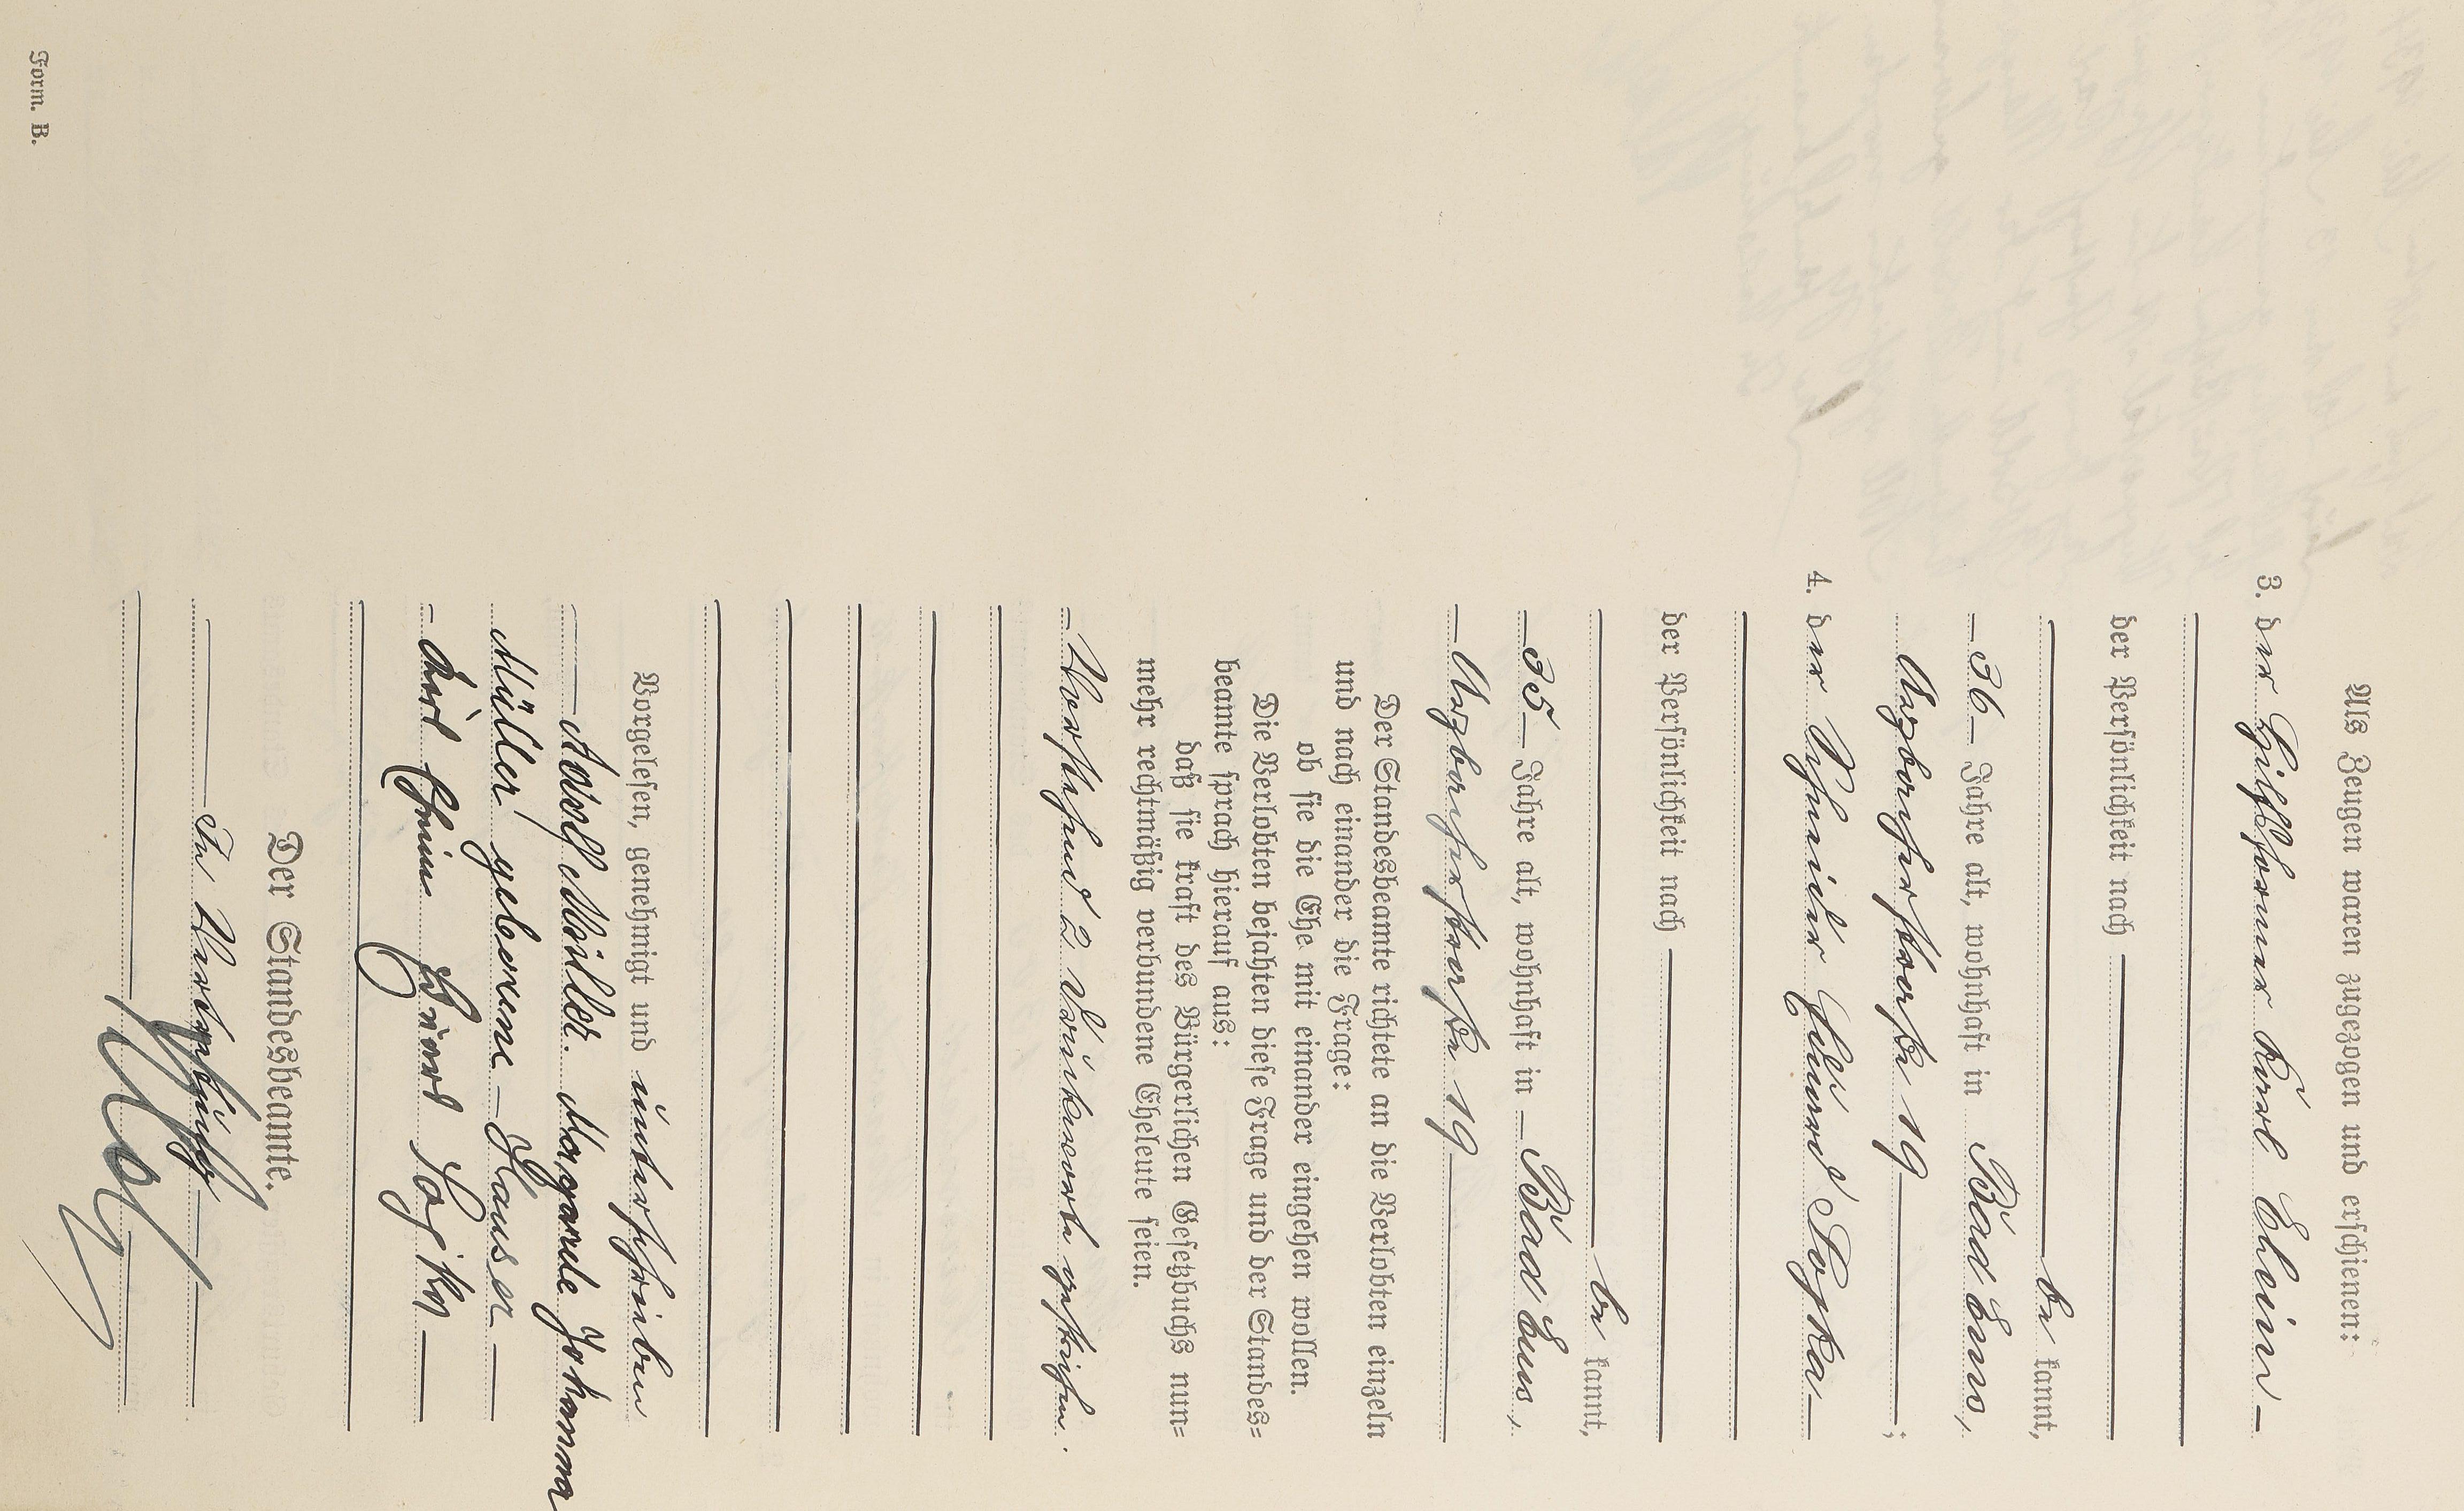 Als Zeugen waren zugezogen und erschienen:
3. der Hilfsformer Karl Ehlein
der Persönlichkeit nach
be kannt,
36 Jahre alt, wohnhaft in Bad Ems,
Arzbacherstraße 19 ;
4. der Schneider Eduard
der Persönlichkeit nach
be kannt,
35 Jahre alt, wohnhaft in Bad Ems,
Arzbacherstraße 19
Der Standesbeamte richtete an die Verlobten einzeln
und nach einander die Frage:
ob sie die Ehe mit einander eingehen wollen.
Die Verlobten bejahten diese Frage und der Standes=
beamte sprach hierauf aus:
daß sie kraft des Bürgerlichen Gesetzbuchs nun=
mehr rechtmäßig verbundene Eheleute seien.
Vorstehend 2 Druckworte gestrichen.
Vorgelesen, genehmigt und unterschrieben
Adolf Müller. Margarete Johanna
Müller geborene Hauser
Karl Eduard
Der Standesbeamte.
In Vertretung
Form. B.